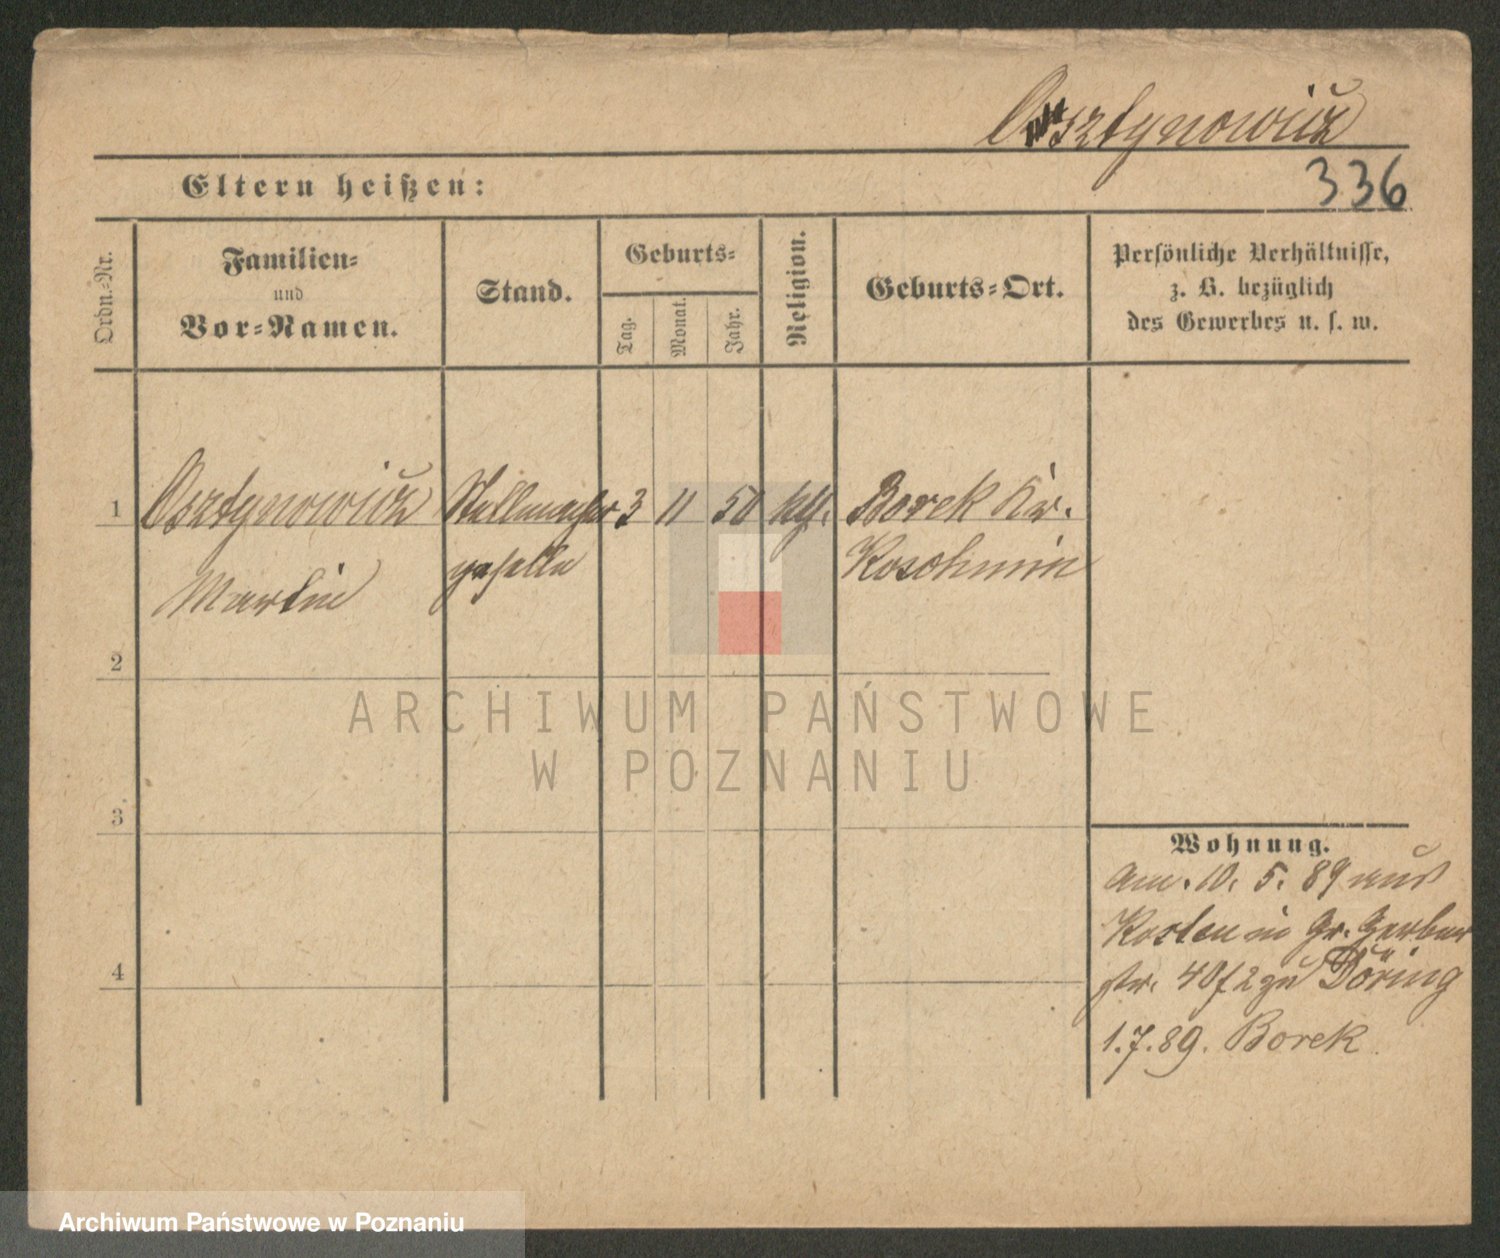 Osztynowicz
336
Eltern heißen:
Ordn.-Nr.
Familien-
und
Vor-Namen.
Stand.
Geburts-
Tag.
Monat.
Jahr.
Religion.
Geburts-Ort.
Persönliche Verhältnisse,
z. B. bezüglich
des Gewerbes u. s. w.
1 Osztynowicz Stellmacher 3 11 50 kth. Borek Kr.
Martin geselle Koschmin
2
3
4
Wohnung.
Am. 10. 5. 89 aus
Kosten in Gr. Gerber
str. 40/2 zu Döring
1.7.89. Borek
ARCHIWUM PAŃSTWOWE
W POZNANIU
Archiwum Państwowe w Poznaniu